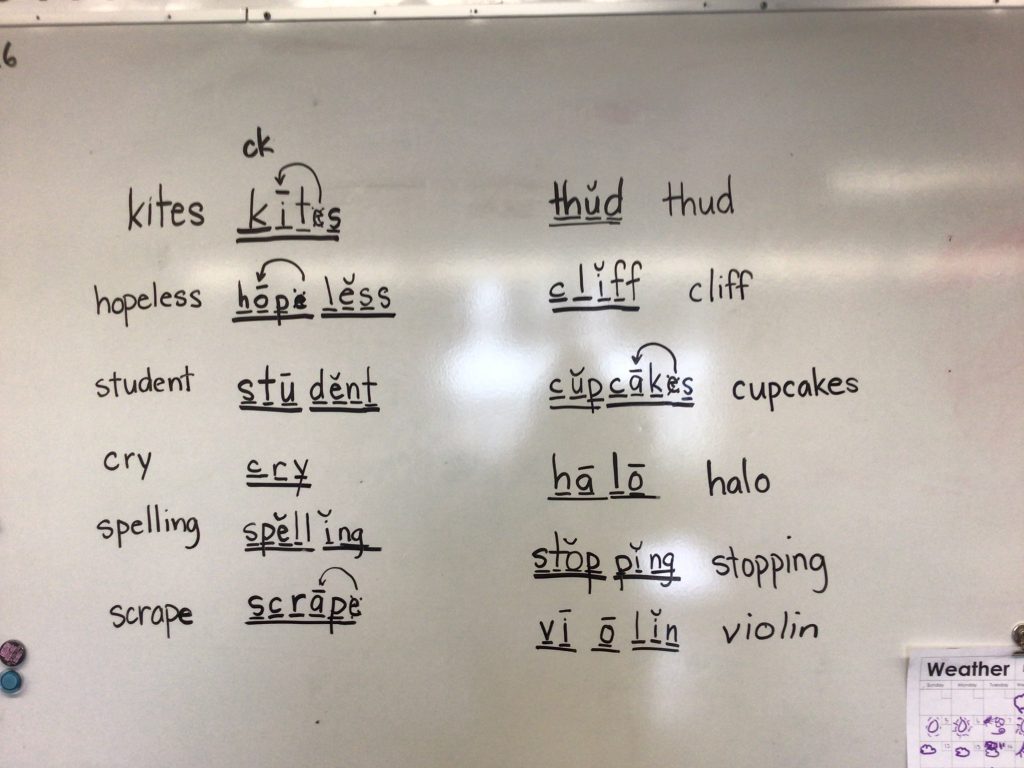 6
ck
kites kītes
hopeless hōpe lĕss
student stū dĕnt
cry cry
spelling spĕll ĭng
scrape scrāpe
thŭd thud
clĭff cliff
cŭpcākes cupcakes
hā lō halo
stŏp pĭng stopping
vī ō lĭn violin
Weather
Sunday Monday Tuesday